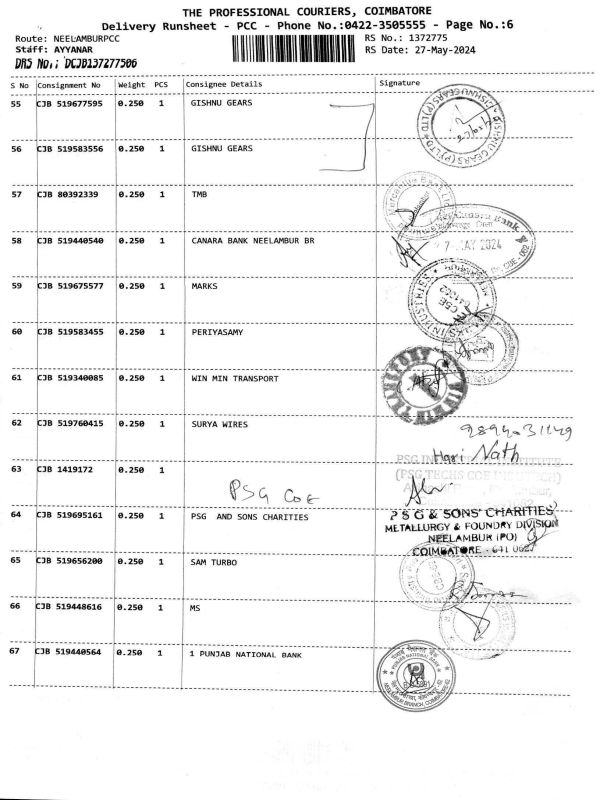 THE PROFESSIONAL COURIERS, COIMBATORE
Delivery Runsheet - PCC - Phone No.:0422-3505555 - Page No.:6
Route: NEELAMBURPCC
RS No.: 1372775
Staff: AYYANAR
RS Date: 27-May-2024
DRS No.: DCJB137277506
S No Consignment No Weight PCS Consignee Details Signature
55 CJB 519677595 0.250 1 GISHNU GEARS
56 CJB 519583556 0.250 1 GISHNU GEARS
GISHNU GEARS (P) LTD
57 CJB 80392339 0.250 1 TMB
58 CJB 519440540 0.250 1 CANARA BANK NEELAMBUR BR
Canara Bank
27 MAY 2024
59 CJB 519675577 0.250 1 MARKS
60 CJB 519583455 0.250 1 PERIYASAMY
61 CJB 519340085 0.250 1 WIN MIN TRANSPORT
62 CJB 519760415 0.250 1 SURYA WIRES
Hari Nath
63 CJB 1419172 0.250 1
PSG COE
64 CJB 519695161 0.250 1 PSG AND SONS CHARITIES
PSG & SONS' CHARITIES
METALLURGY & FOUNDRY DIVISION
NEELAMBUR (PO)
COIMBATORE - 641 062
65 CJB 519656200 0.250 1 SAM TURBO
66 CJB 519448616 0.250 1 MS
67 CJB 519440564 0.250 1 1 PUNJAB NATIONAL BANK
PUNJAB NATIONAL BANK